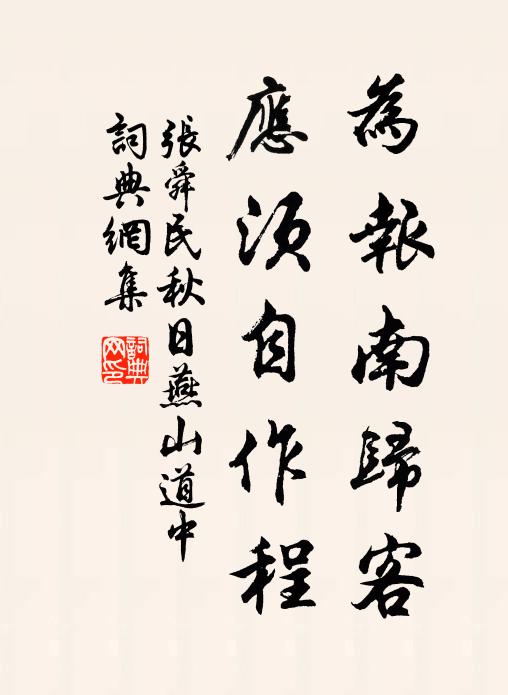 為報南歸客
應須自作程
張舜民秋日燕山道中
詞典網集
詞典
网印